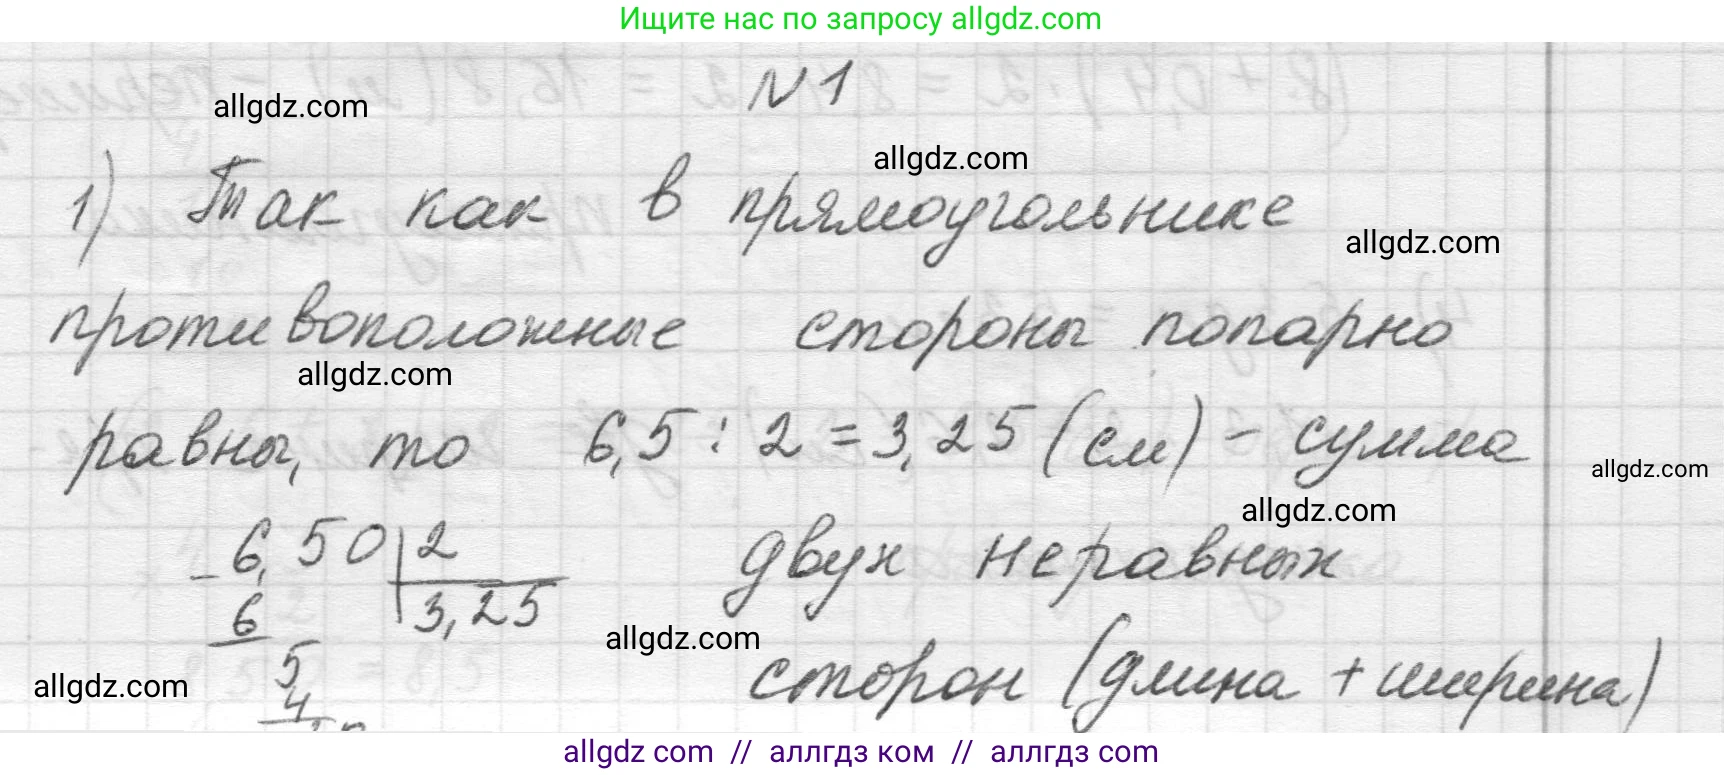 Ищите нас по запросу allgdz.com
N 1
allgdz.com
allgdz.com
1) Так как в прямоугольнике
allgdz.com
противоположные стороны попарно
allgdz.com
равны, то 6,5 : 2 = 3,25 (см) - сумма
allgdz.com
allgdz.com
6,50 | 2
двух неравных
- 6
3,25
allgdz.com
5
сторон (длина + ширина)
allgdz.com
4
allgdz com // аллгдз ком // аллгдз com